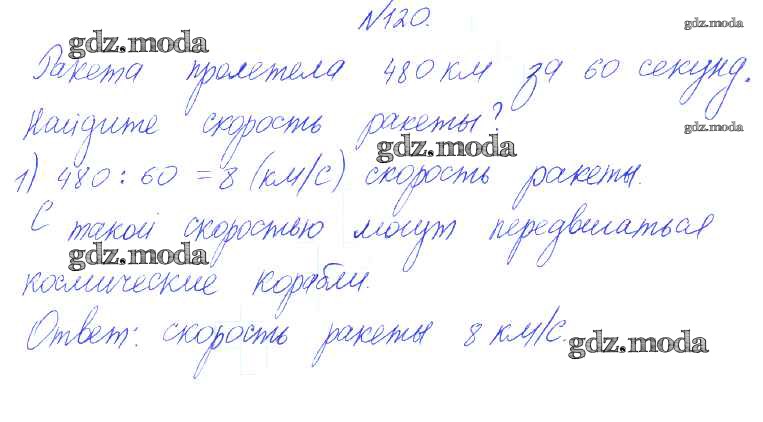 №120.
gdz.moda
gdz.moda
Ракета пролетела 480 км за 60 секунд.
Найдите скорость ракеты?
gdz.moda
gdz.moda
1) 480 : 60 = 8 (км/с) скорость ракеты.
С такой скоростью могут передвигаться
gdz.moda
космические корабли.
Ответ: скорость ракеты 8 км/с.
gdz.moda